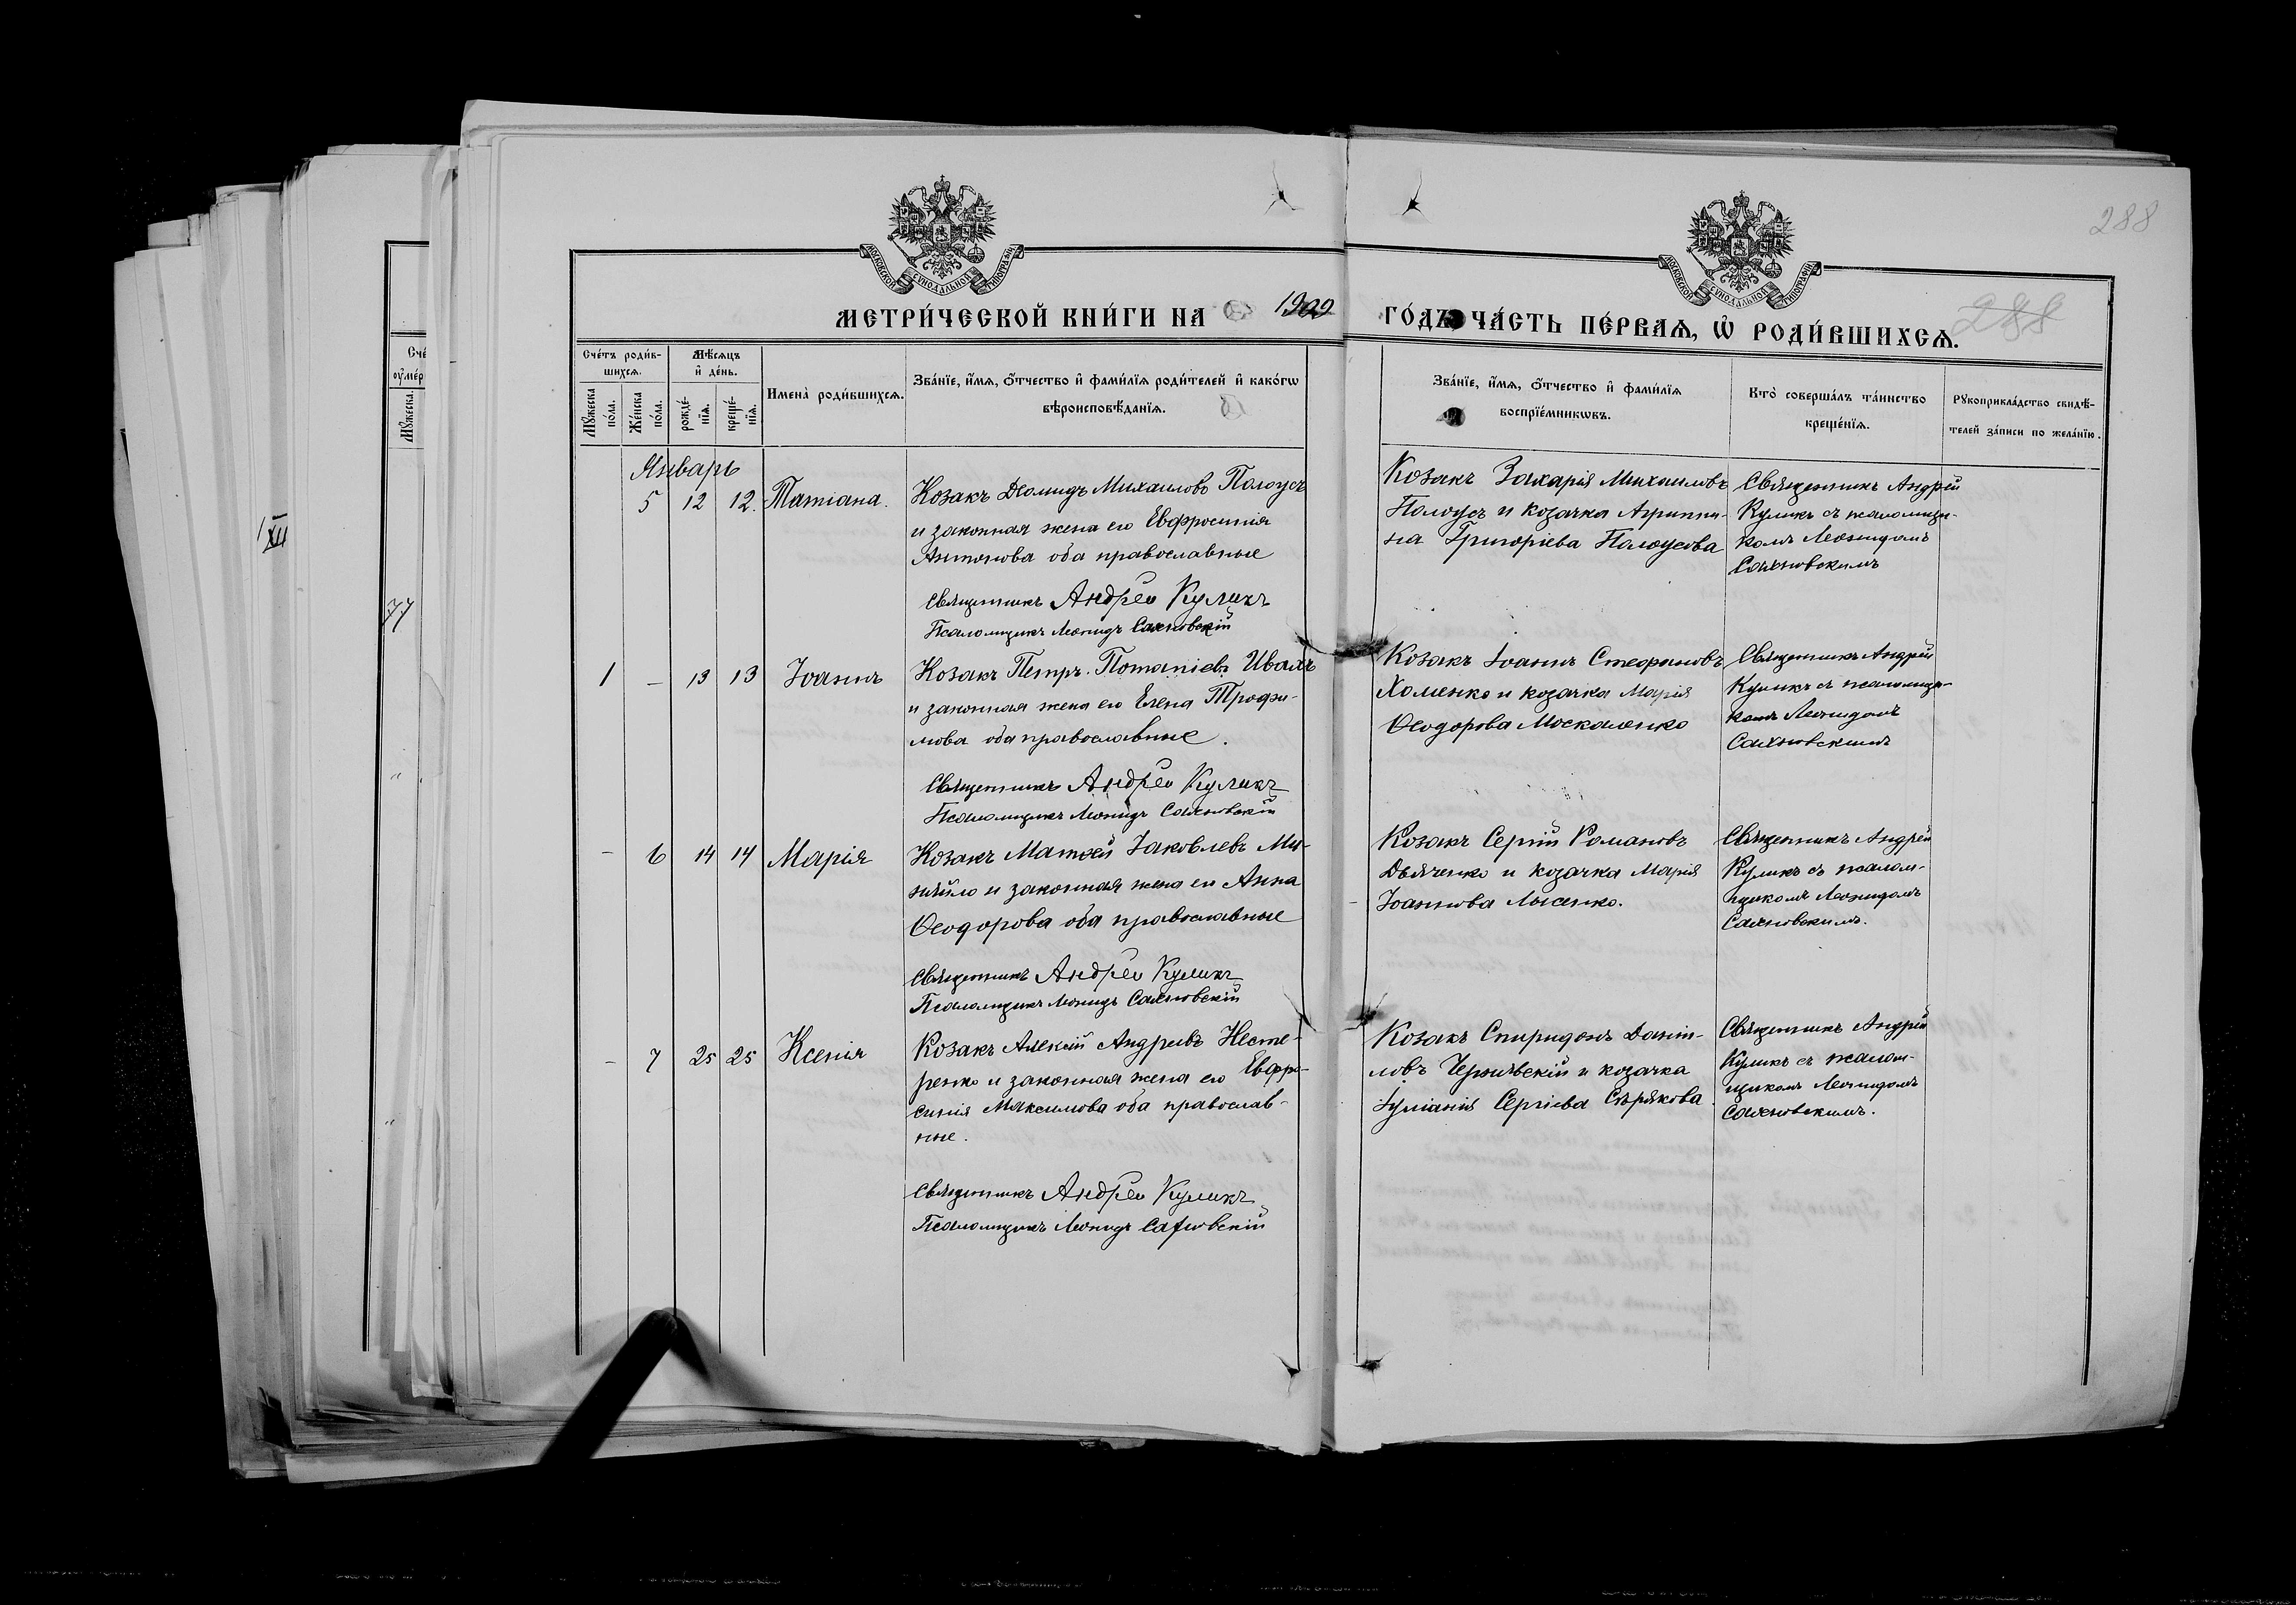 288
МОСКОВСКОЙ СУНОДАЛЬНОЙ ТИПОГРАФІИ
МОСКОВСКОЙ СУНОДАЛЬНОЙ ТИПОГРАФІИ
МЕТРИ́ЧЕСКОЙ КНИ́ГИ НА 1909 ГО́ДЪ ЧА́СТЬ ПЕ́РВАѦ, Ѡ҆ РОДИ́ВШИХСѦ.
288
Сче́тъ роди́в-
шихсѧ.
Мꙋ́жеска по́ла.
Же́нска по́ла.
Мѣ́сѧцъ
и҆ де́нь.
рожде́-
нїѧ.
креще́-
нїѧ.
Имена̀ роди́вшихсѧ.
Зва́нїе, и҆́мѧ, ѻ҆́тчество и҆ фами́лїѧ роди́телей и҆ како́гѡ
вѣроисповѣ́данїѧ.
Зва́нїе, и҆́мѧ, ѻ҆́тчество и҆ фами́лїѧ
воспрїе́мникѡвъ.
Кто̀ соверша́лъ та́инство
креще́нїѧ.
Рꙋкоприкла́дство свидѣ́-
телей за́писи по жела́нїю.
Январь
5 12 12. Татіана.
Козакъ Діомидъ Михаиловъ Полоусъ
и законная жена его Евфросинія
Антонова оба православные
Священникъ Андрей Куликъ
Псаломщикъ Леонидъ Сахновскій
Козакъ Захарія Михаиловъ
Полоусъ и козачка Агриппи-
на Григоріева Полоусова
Священникъ Андрей
Куликъ съ псаломщи-
комъ Леонидомъ
Сахновскимъ
1 – 13 13 Іоаннъ
Козакъ Петръ Потапіевъ Ивахъ
и законная жена его Елена Трофи-
мова оба православные.
Священникъ Андрей Куликъ
Псаломщикъ Леонидъ Сахновскій
Козакъ Іоаннъ Стефановъ
Хоменко и козачка Марія
Ѳеодорова Москаленко
Священникъ Андрей
Куликъ съ псаломщи-
комъ Леонидомъ
Сахновскимъ
– 6 14 14 Марія
Козакъ Матѳей Іаковлевъ Ми-
няйло и законная жена его Анна
Ѳеодорова оба православные
Священникъ Андрей Куликъ
Псаломщикъ Леонидъ Сахновскій
Козакъ Сергій Романовъ
Дьяченко и козачка Марія
Іоаннова Лысенко.
Священникъ Андрей
Куликъ съ псалом-
щикомъ Леонидомъ
Сахновскимъ.
– 7 25 25 Ксенія
Козакъ Алексій Андреевъ Несте-
ренко и законная жена его Евфро-
синія Максимова оба православ-
ные.
Священникъ Андрей Куликъ
Псаломщикъ Леонидъ Сахновскій
Козакъ Спиридонъ Даніи-
ловъ Чернявскій и козачка
Іуліанія Сергіева Сѣрякова.
Священникъ Андрей
Куликъ съ псалом-
щикомъ Леонидомъ
Сахновскимъ.
XII
77